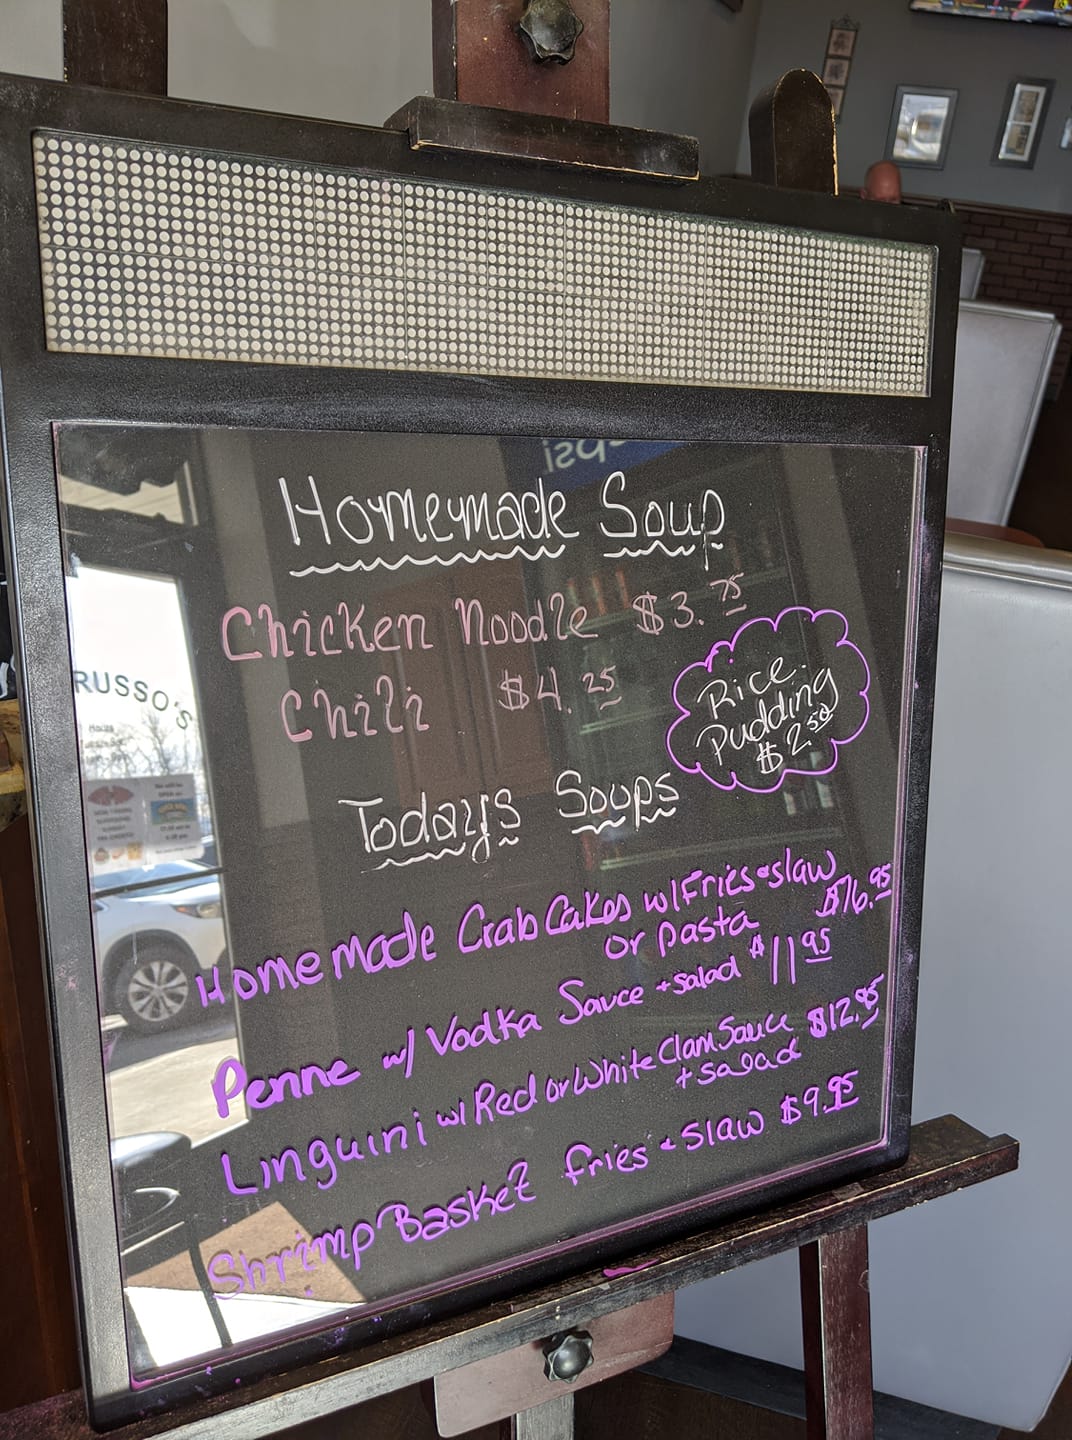 Homemade Soup
Chicken Noodle $3.75
Chili $4.25
Rice
Pudding
$2.50
Todays Soups
Homemade Crab Cakes w/Fries & slaw
or pasta $16.95
Penne w/ Vodka Sauce + salad $11.95
Linguini w/ Red or White Clam Sauce $12.95
+ salad
Shrimp Basket fries & slaw $9.95
RUSSO'S